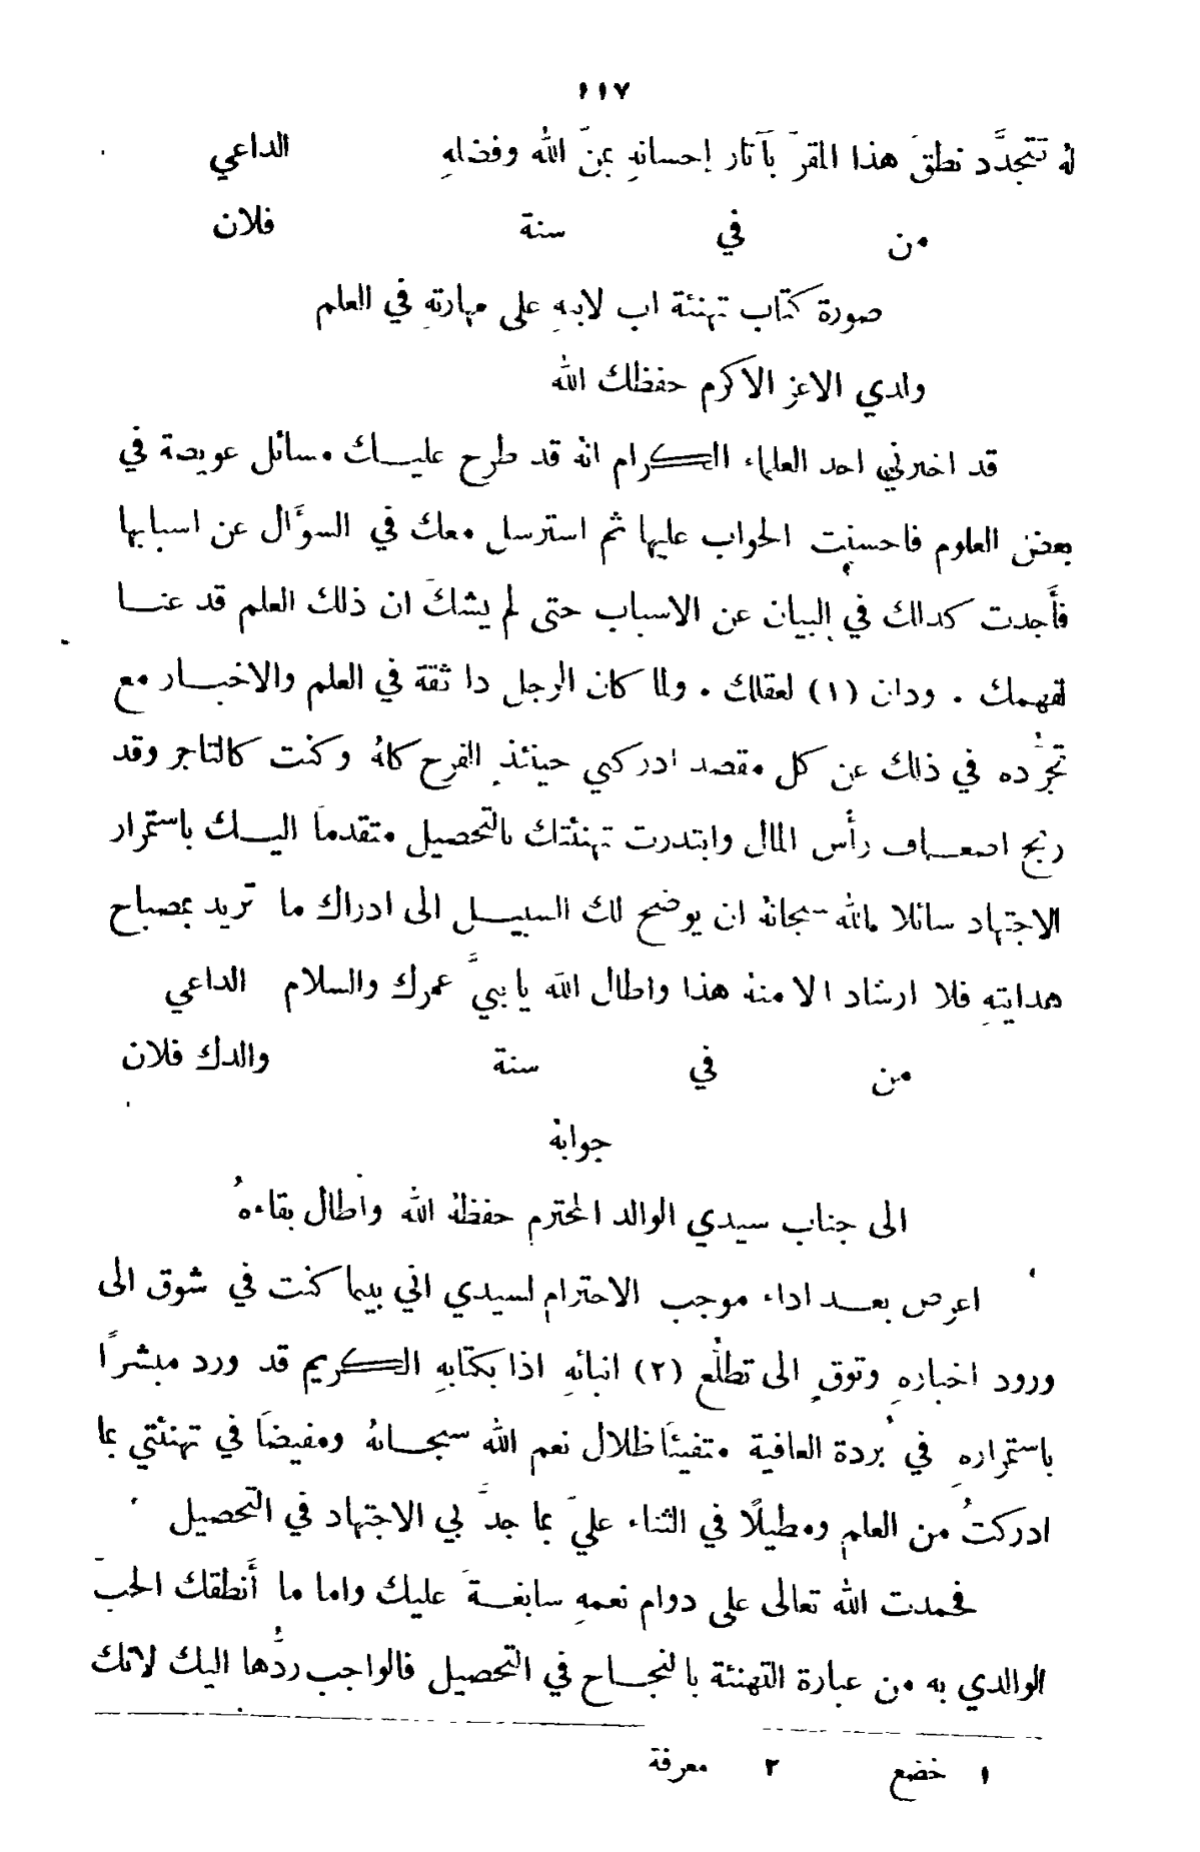 ١١٧
لهُ تتجدَّد نطقَ هذا المقرّ بآثار إحسانهِ بمنّ الله وفضلهِ الداعي
من في سنة فلان
صورة كتاب تهنئة اب لابنهِ على مهارتهِ في العلم
ولدي الاعز الاكرم حفظك الله
قد اخبرني احد العلماء الكرام انهُ قد طرح عليك مسائل عويصة في
بعض العلوم فاحسنت الجواب عليها ثم استرسل معك في السوَّال عن اسبابها
فأَجدت كذلك في البيان عن الاسباب حتى لم يشكَّ ان ذلك العلم قد عنا
لفهمك . ودان (١) لعقلك . ولما كان الرجل ذا ثقة في العلم والاخبار مع
تجرُّده في ذلك عن كل مقصد ادركني حينئذٍ الفرح كلهُ وكنت كالتاجر وقد
ربح اضعاف رأْس المال وابتدرت تهنئتك بالتحصيل متقدماً اليك باستمرار
الاجتهاد سائلا الله سبحانهُ ان يوضح لك السبيل الى ادراك ما تريد بمصباح
هدايتهِ فلا ارشاد الا منهُ هذا واطال الله يا بنيَّ عمرك والسلام الداعي
من في سنة والدك فلان
جوابهُ
الى جناب سيدي الوالد المحترم حفظهُ الله واطال بقاءهُ
اعرض بعد اداء موجب الاحترام لسيدي اني بينما كنت في شوق الى
ورود اخبارهِ وتوقٍ الى تطلُّع (٢) انبائهِ اذا بكتابهِ الكريم قد ورد مبشرًا
باستمرارهِ في بُردة العافية متفيئاً ظلال نعم الله سبحانهُ ومفيضاً في تهنئتي بما
ادركتُ من العلم ومطيلًا في الثناء عليَّ بما جدَّ بي الاجتهاد في التحصيل
فحمدت الله تعالى على دوام نعمهِ سابغةً عليك واما ما أَنطقك الحبّ
الوالدي به من عبارة التهنئة بالنجاح في التحصيل فالواجب ردُّها اليك لانك
١ خضع ٢ معرفة